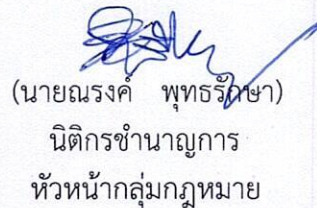 (นายณรงค์ พุทธรักษา)
นิติกรชำนาญการ
หัวหน้ากลุ่มกฎหมาย